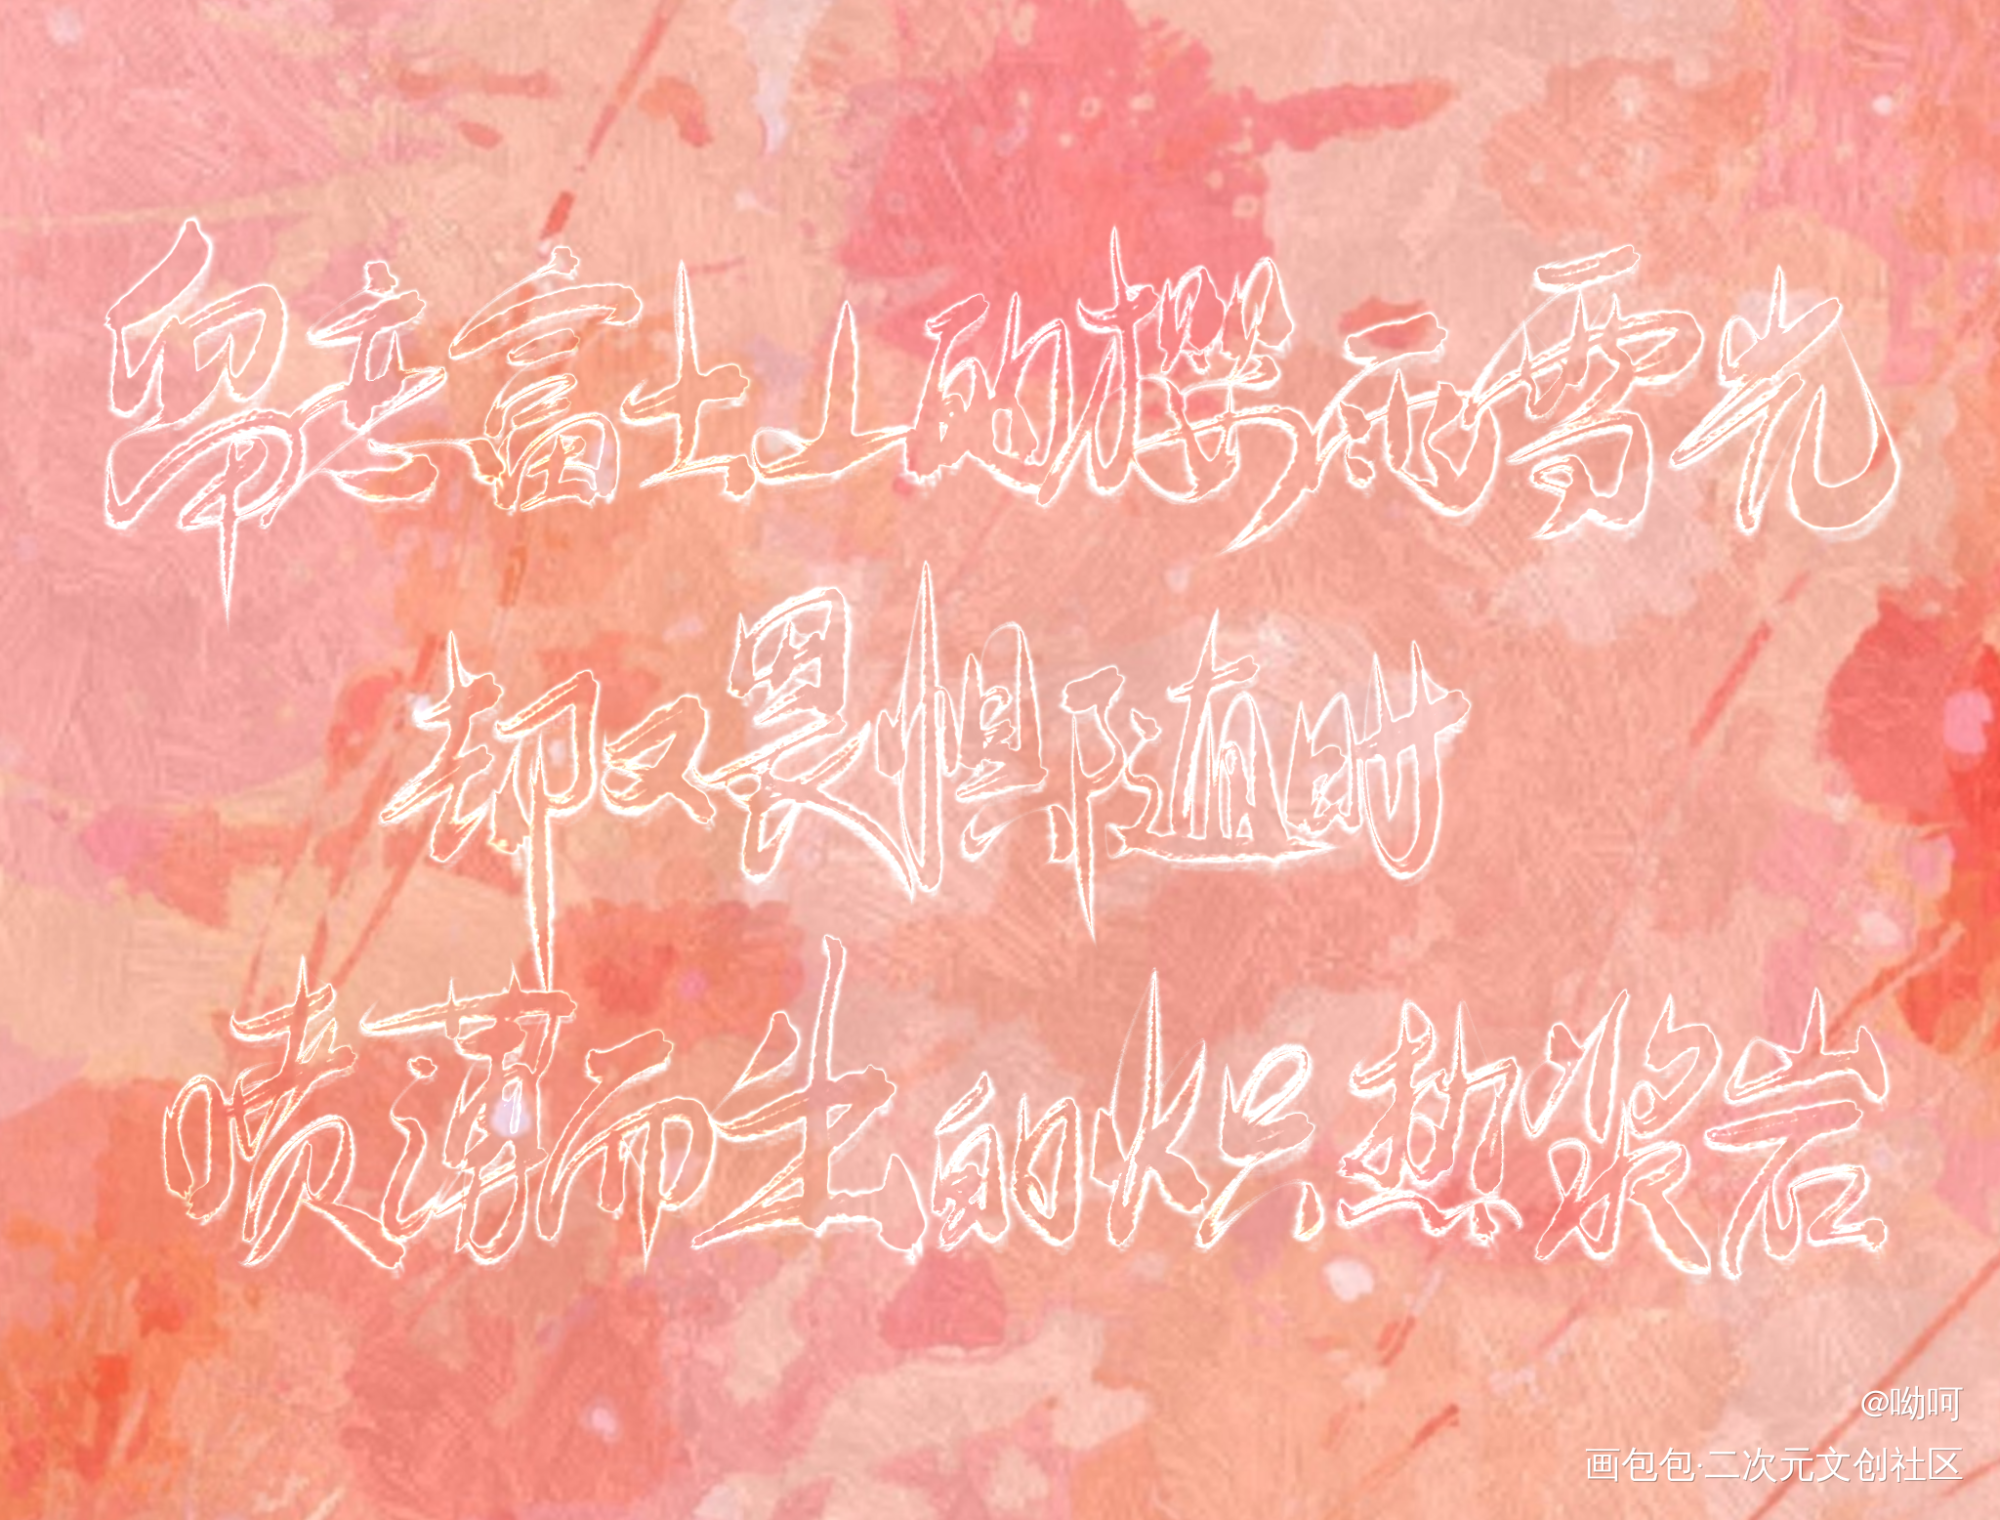 留恋富士山的樱雨雪光
却又畏惧随时
喷薄而出的炽热浆岩
@呦呵
画包包·二次元文创社区